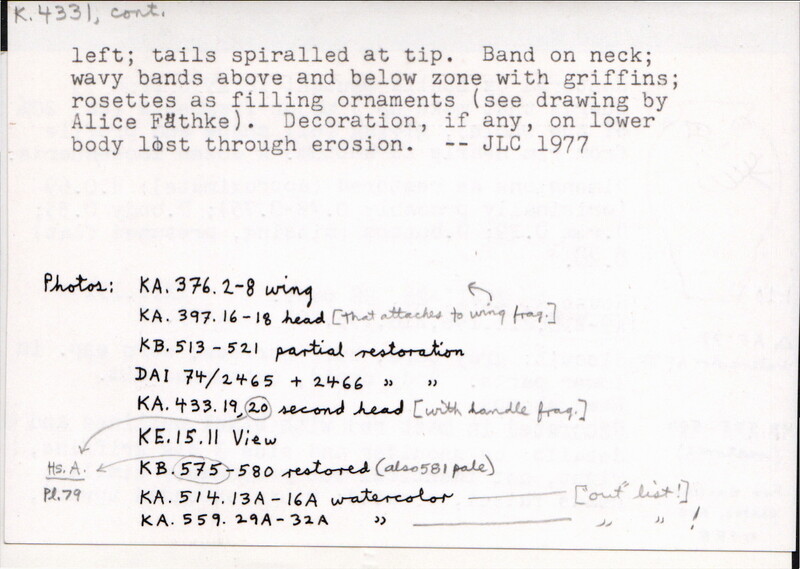 K.4331, cont.
left; tails spiralled at tip. Band on neck;
wavy bands above and below zone with griffins;
rosettes as filling ornaments (see drawing by
Alice Fäthke). Decoration, if any, on lower
body lost through erosion. -- JLC 1977
Photos: KA.376.2-8 wing
KA.397.16-18 head [that attaches to wing frag.]
KB.513-521 partial restoration
DAI 74/2465 + 2466 " "
KA.433.19,20 second head [with handle frag.]
KE.15.11 View
Hs.A. KB.575-580 restored (also 581 pale)
Pl.79 KA.514.13A-16A watercolor — ["out" list!]
KA.559.29A-32A " — " " !